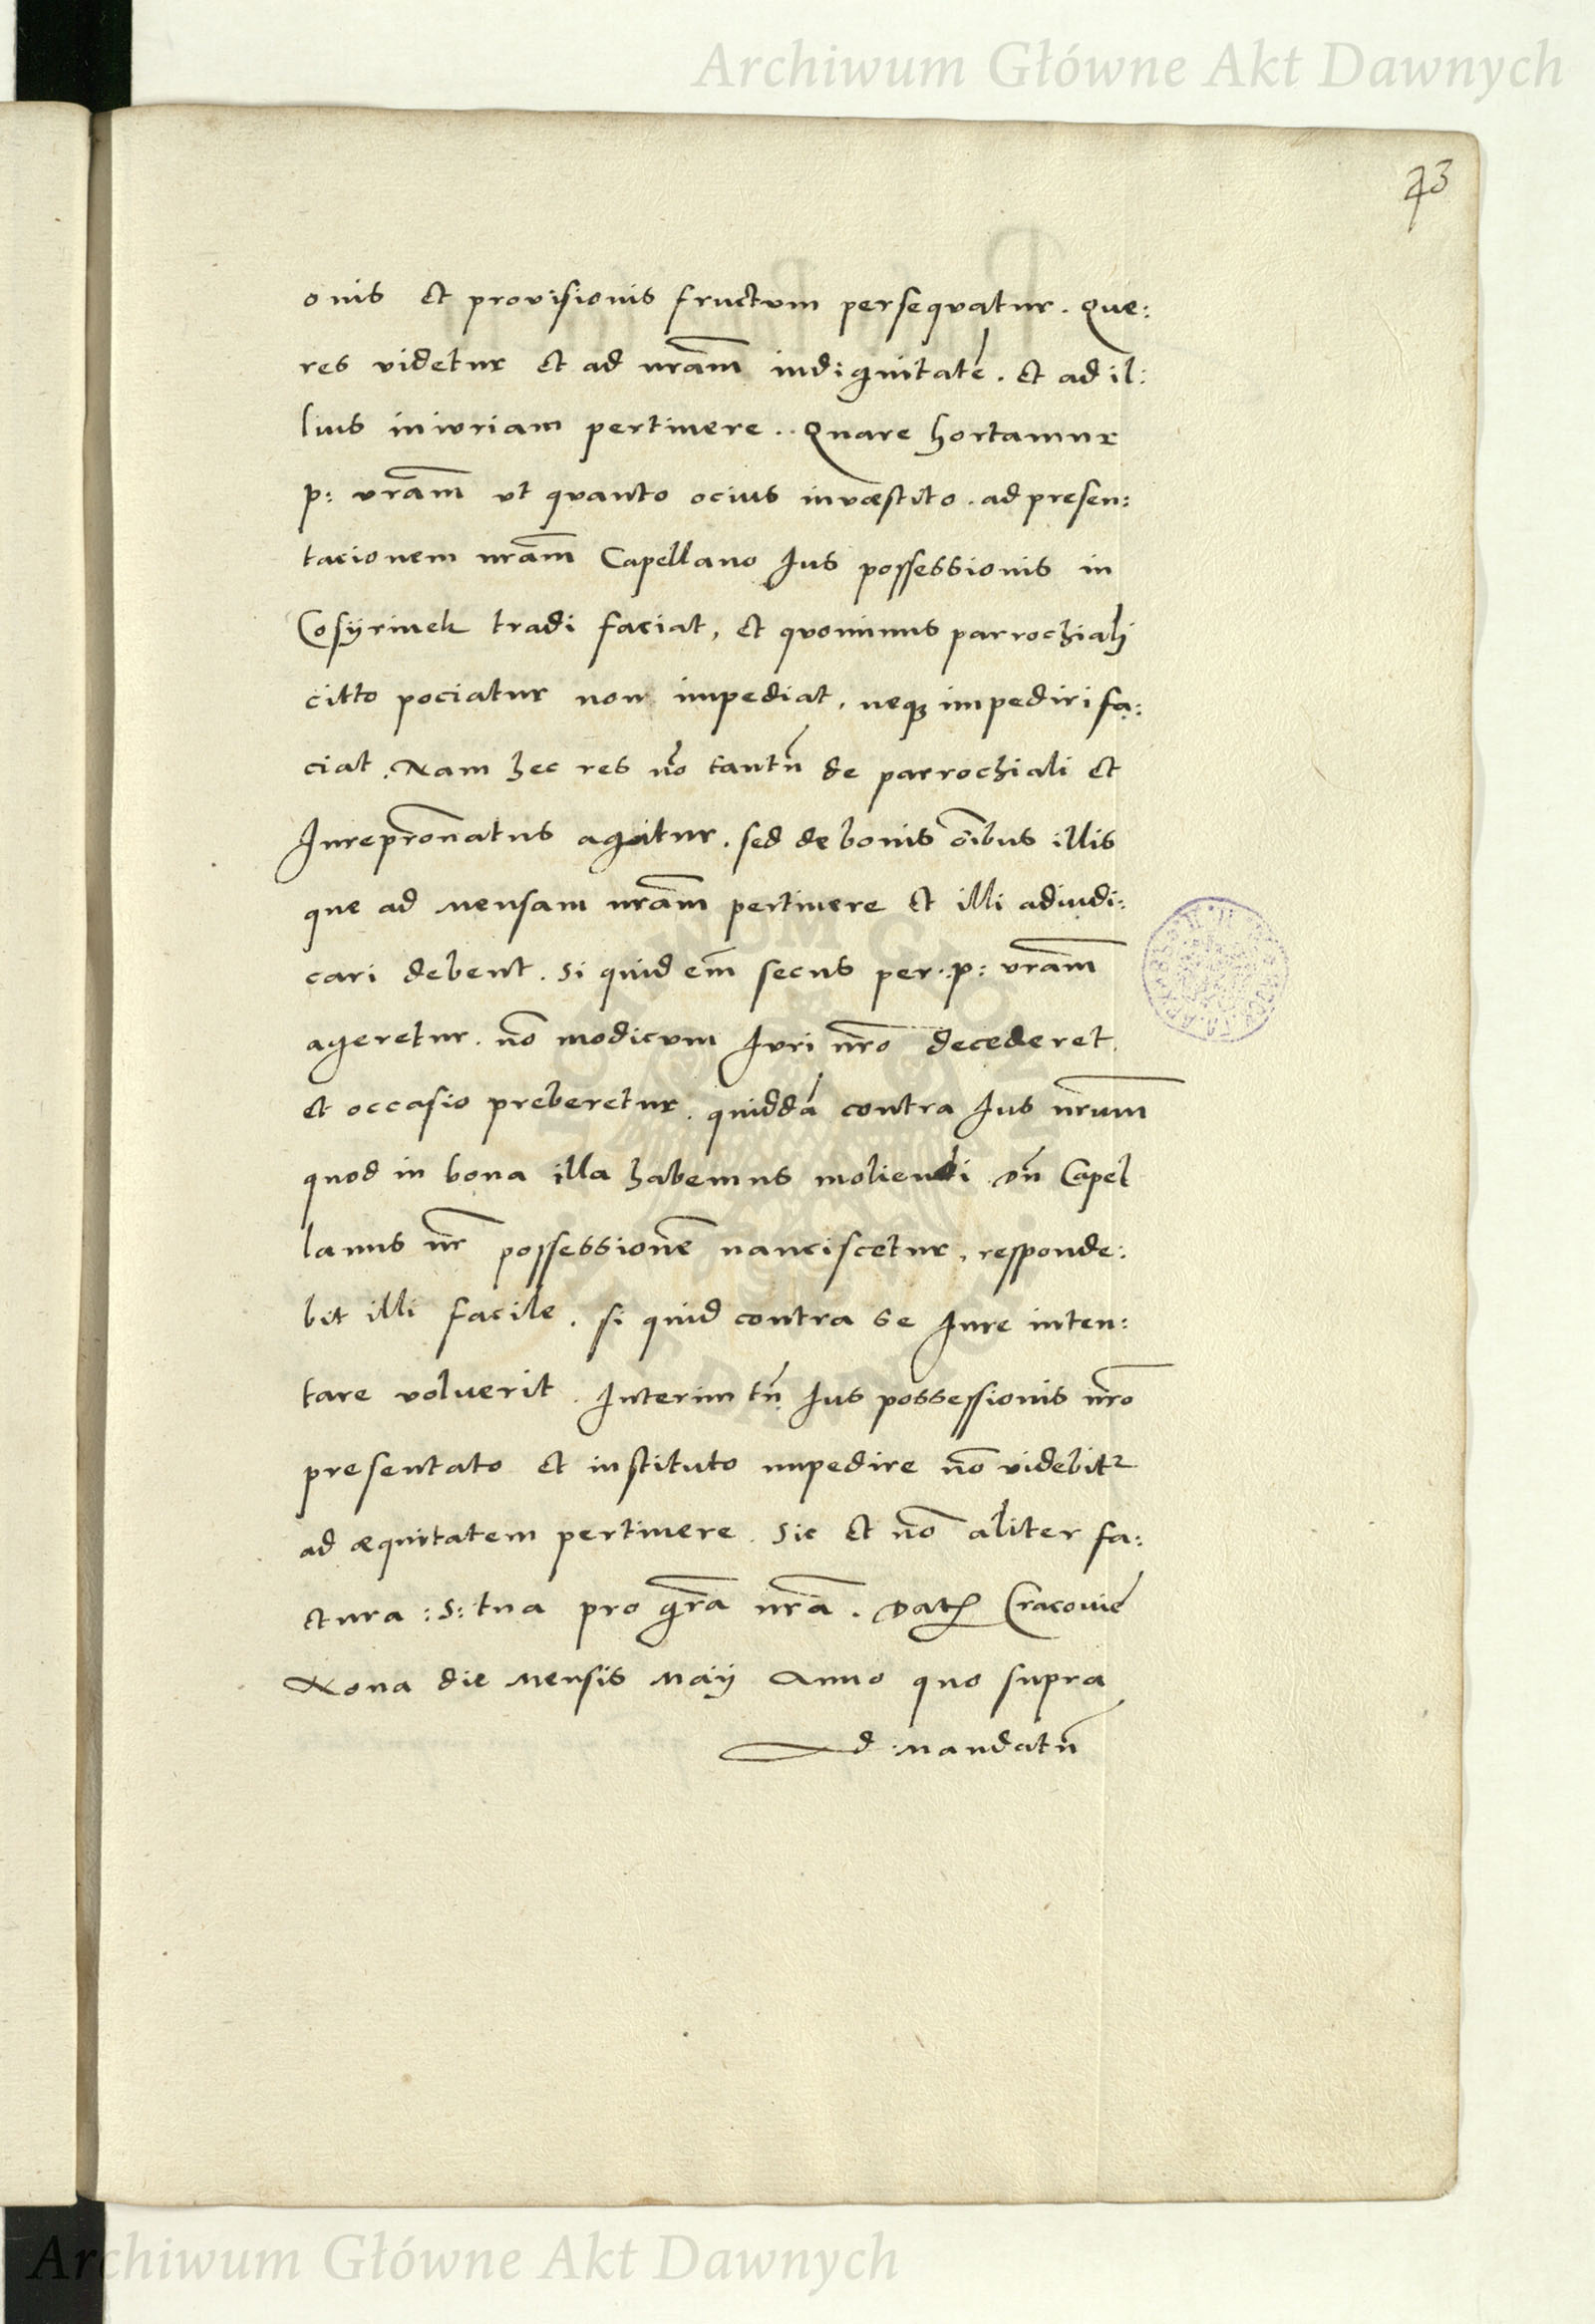 Archiwum Główne Akt Dawnych
73
onis et provisionis fructvm perseqvatur. Que:
res videtur et ad nr̃am indignitatẽ. et ad il:
lius iniuriam pertinere.. Quare hortamur
p: vr̃am vt qvanto ocius invæstito. ad presen:
tacionem nr̃am Capellano Ius possessionis in
Cosÿrinek tradi faciat, et qvominus parrochiali
citto pociatur non impediat, neqз impediri fa:
ciat. Nam hec res nõ tantũ de parrochiali et
Iurepr̃onatus agitur. sed de bonis õibus illis
que ad Mensam nr̃am pertinere et illi adiudi:
cari debent. Si quid em̃ secus per.:p: vr̃am
ageretur. nõ modicvm Ivri nr̃o decederet.
et occasio preberetur. quiddã contra Ius nr̃um
quod in bona illa habemus moliendi. Dñ Capel
lanus nr̃ possessionẽ nanciscetur, responde:
bit illi facile. si quid contra se Iure inten:
tare volverit. Interim tñ Ius possessionis nr̃o
presentato et instituto impedire nõ videbitr
ad æquitatem pertinere. Sic et nõ aliter fa:
ctura :S: tua pro gr̃a nr̃a. Dat Cracoviẽ
Nona die Mensis Maij Anno quo supra
Ad :Mandatũ
Archiwum Główne Akt Dawnych